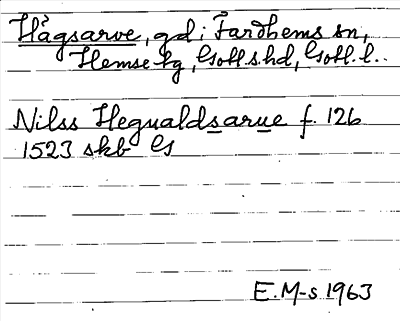 Hågsarve, gd i Fardhems sn,
Hemse kg, Gotl.s.hd, Gotl. l..
Nilss Hegualdsarue f. 126
1523 skb Gs
E.M-s 1963